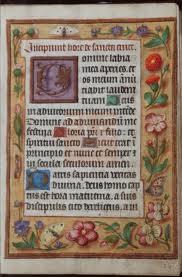 Incipiunt hore de sancta cruce.
Domine labia
mea aperies, et
os meum annū
ciabit laudem
tuam Deus in
adiutorium meum intende
Domine ad adiuvandum me
festina Gloria patri et filio et
spiritui sancto Sicut erat in
principio et nunc et semper et
in secula seculorum amen.
Patris sapientia veritas
divina, deus homo cap
tus est hora matutina, a suis
discipulis cito derelictus, a iu